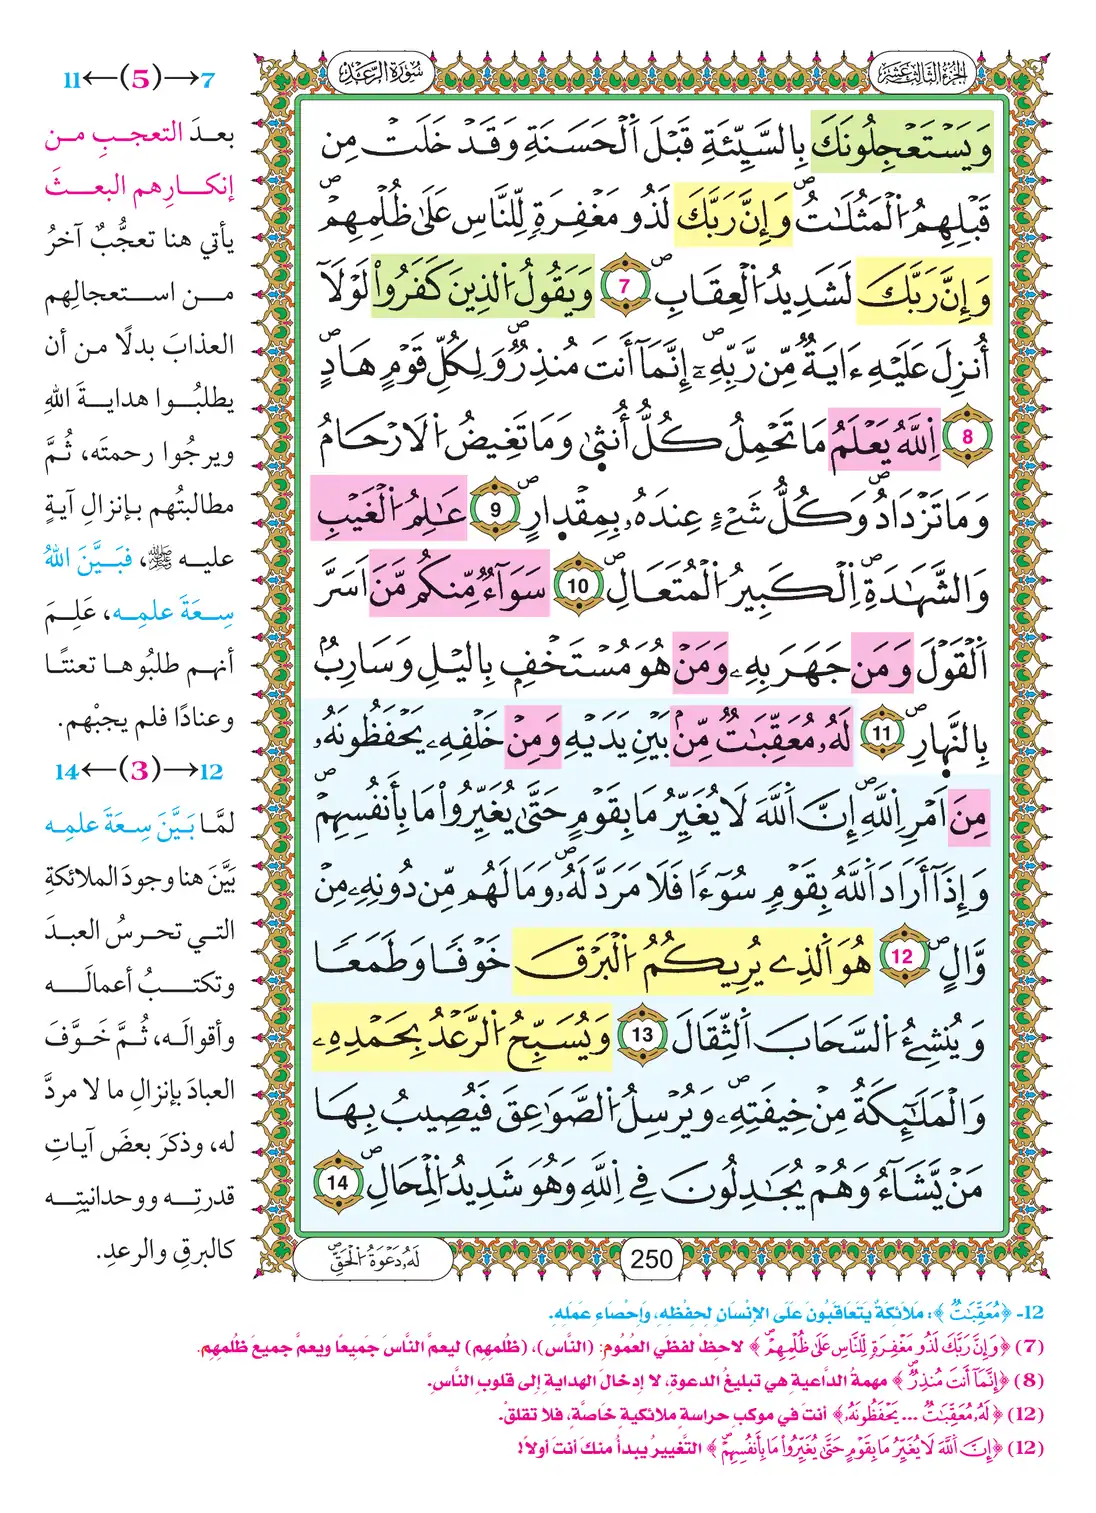 الجزء الثالث عشر
سورة الرعد
وَيَسْتَعْجِلُونَكَ بِالسَّيِّئَةِ قَبْلَ اَلْحَسَنَةِ وَقَدْ خَلَتْ مِن
قَبْلِهِمُ اُلْمَثُلَٰتُۖ وَإِنَّ رَبَّكَ لَذُو مَغْفِرَةٖ لِّلنَّاسِ عَلَىٰ ظُلْمِهِمْۖ
وَإِنَّ رَبَّكَ لَشَدِيدُ اُلْعِقَابِۖ 7 وَيَقُولُ اُلذِينَ كَفَرُواْ لَوْلَآ
أُنزِلَ عَلَيْهِ ءَايَةٞ مِّن رَّبِّهِۦٓۖ إِنَّمَآ أَنتَ مُنذِرٞۖ وَلِكُلِّ قَوْمٍ هَادٍۖ
8 اِ۬للَّهُ يَعْلَمُ مَا تَحْمِلُ كُلُّ أُنثَىٰ وَمَا تَغِيضُ اُلَارْحَامُ
وَمَا تَزْدَادُۖ وَكُلُّ شَےْءٍ عِندَهُۥ بِمِقْدَارٍۖ 9 عَٰلِمُ اُلْغَيْبِ
وَالشَّهَٰدَةِۖ اِ۬لْكَبِيرُ اُلْمُتَعَالِۖ 10 سَوَآءٞ مِّنكُم مَّنَ اَسَرَّ
اَ۬لْقَوْلَ وَمَن جَهَرَ بِهِۦ وَمَنْ هُوَ مُسْتَخْفِۭ بِاليْلِ وَسَارِبُۢ
بِالنَّهَارِۖ 11 لَهُۥ مُعَقِّبَٰتٞ مِّنۢ بَيْنِ يَدَيْهِ وَمِنْ خَلْفِهِۦ يَحْفَظُونَهُۥ
مِنَ اَمْرِ اِ۬للَّهِۖ إِنَّ اَ۬للَّهَ لَا يُغَيِّرُ مَا بِقَوْمٍ حَتَّىٰ يُغَيِّرُواْ مَا بِأَنفُسِهِمْۖ
وَإِذَآ أَرَادَ اَ۬للَّهُ بِقَوْمٖ سُوٓءٗا فَلَا مَرَدَّ لَهُۥۖ وَمَا لَهُم مِّن دُونِهِۦ مِنْ
وَّالٍۖ 12 هُوَ اَ۬لذِے يُرِيكُمُ اُ۬لْبَرْقَ خَوْفٗا وَطَمَعٗا
وَيُنشِۓُ اُ۬لسَّحَابَ اَ۬لثِّقَالَ 13 وَيُسَبِّحُ اُ۬لرَّعْدُ بِحَمْدِهِۦ
وَالْمَلَٰٓئِكَةُ مِنْ خِيفَتِهِۦۖ وَيُرْسِلُ اُ۬لصَّوَٰعِقَ فَيُصِيبُ بِهَا
مَنْ يَّشَآءُ وَهُمْ يُجَٰدِلُونَ فِے اِ۬للَّهِ وَهُوَ شَدِيدُ اُ۬لْمِحَالِۖ 14
250
لَهُۥ دَعْوَةُ اُ۬لْحَقِّۖ
7→(5)←11
بعدَ التعجبِ من
إنكارِهم البعثَ
يأتي هنا تعجُّبٌ آخرُ
من استعجالِهم
العذابَ بدلًا من أن
يطلبُوا هدايةَ اللهِ
ويرجُوا رحمتَه، ثُمَّ
مطالبتُهم بإنزالِ آيةٍ
عليه ﷺ، فبَيَّنَ اللهُ
سِعَةَ علمِه، عَلِمَ
أنهم طلبُوها تعنتًا
وعنادًا فلم يجبْهم.
12→(3)←14
لمَّا بَيَّنَ سِعَةَ علمِه
بَيَّنَ هنا وجودَ الملائكةِ
التي تحرسُ العبدَ
وتكتبُ أعمالَه
وأقوالَه، ثُمَّ خَوَّفَ
العبادَ بإنزالِ ما لا مردَّ
له، وذكرَ بعضَ آياتِ
قدرتِه ووحدانيتِه
كالبرقِ والرعدِ.
12- ﴿مُعَقِّبَٰتٞ﴾: مَلَائِكَةٌ يَتَعَاقَبُونَ عَلَى الإِنْسَانِ لِحِفْظِهِ، وَإِحْصَاءِ عَمَلِهِ.
(7) ﴿وَإِنَّ رَبَّكَ لَذُو مَغْفِرَةٖ لِّلنَّاسِ عَلَىٰ ظُلْمِهِمْۖ﴾ لاحِظْ لفظَي العُمُومِ: (النَّاس)، (ظُلمِهِم) ليعمَّ النَّاسَ جَميعًا ويعمَّ جميعَ ظُلمِهِم.
(8) ﴿إِنَّمَآ أَنتَ مُنذِرٞۖ﴾ مهمةُ الدَّاعيةِ هي تبليغُ الدعوةِ، لا إدخالَ الهدايةِ إلى قلوبِ النَّاسِ.
(12) ﴿لَهُۥ مُعَقِّبَٰتٞ ... يَحْفَظُونَهُۥ﴾ أنتَ في موكبِ حراسةٍ ملائكيةٍ خَاصَّة، فلا تقلقْ.
(12) ﴿إِنَّ اَ۬للَّهَ لَا يُغَيِّرُ مَا بِقَوْمٍ حَتَّىٰ يُغَيِّرُواْ مَا بِأَنفُسِهِمْۖ﴾ التَّغييرُ يبدأُ منكَ أنتَ أولًا!